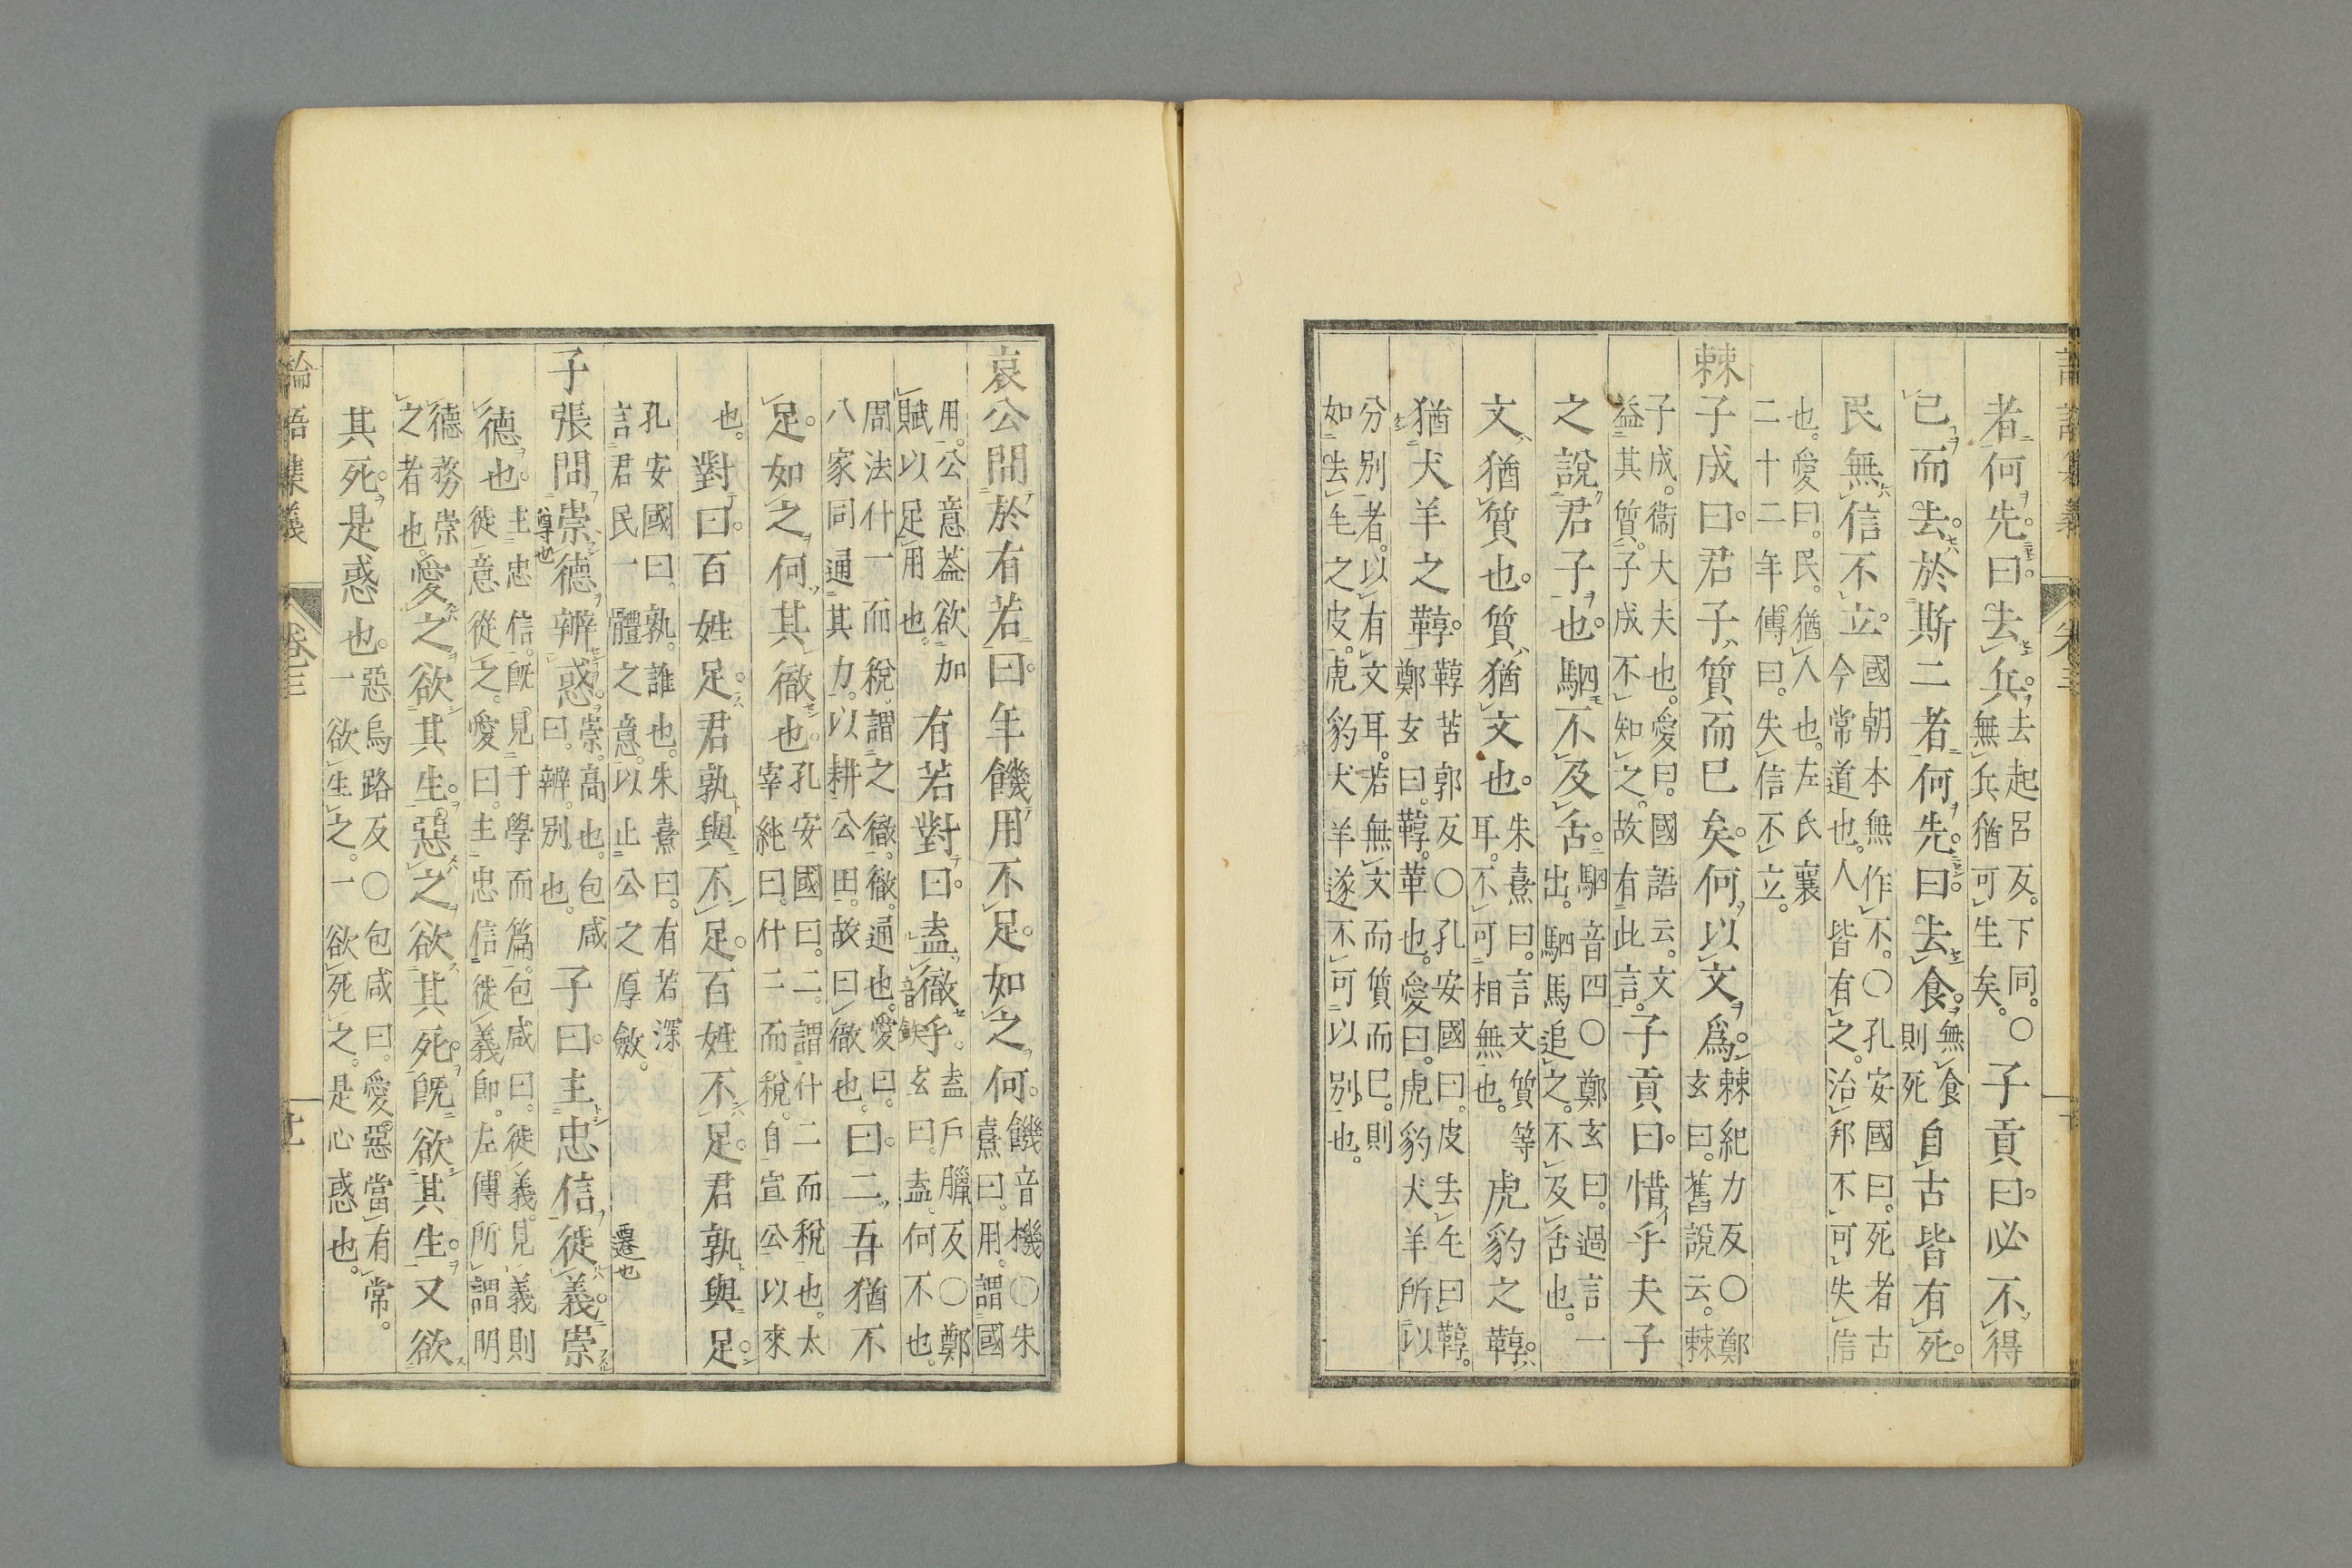 者何先。曰。去兵。去起呂反。下同。〇無兵猶可生矣。子貢曰。必不得
已而去。於斯二者何先。曰。去食。無食則死自古皆有死。
民無信不立。國朝本無作不。〇孔安國曰。死者古今常道也。人皆有之。治邦不可失信
也。愛曰。民。猶人也。左氏襄二十二年傳曰。失信不立。
棘子成曰。君子質而已矣。何以文爲。棘紀力反〇鄭玄曰。舊說云。棘
子成。衞大夫也。愛曰。國語云。文益其質。子成不知之。故有此言。子貢曰。惜乎夫子
之說君子也。駟不及舌。駟音四〇鄭玄曰。過言一出。駟馬追之。不及舌也。
文猶質也。質猶文也。朱熹曰。言文質等耳。不可相無也。虎豹之鞟。
猶犬羊之鞟。鞟苦郭反〇孔安國曰。皮去毛曰鞟。鄭玄曰。鞟。革也。愛曰。虎豹犬羊所以
分別者。以有文耳。若無文而質而已。則如去毛之皮。虎豹犬羊遂不可以別也。
哀公問於有若曰。年饑用不足。如之何。饑音機〇朱熹曰。用。謂國
用。公意蓋欲加賦以足用也。有若對曰。盍徹乎。盍戶臘反〇鄭玄曰。盍。何不也。
周法什一而稅。謂之徹。徹。通也。愛曰。八家同通其力。以耕公田。故曰徹也。曰。二吾猶不
足。如之何其徹也。孔安國曰。二。謂什二而稅也。太宰純曰。什二而稅。自宣公以來
也。對曰。百姓足。君孰與不足。百姓不足。君孰與足。
孔安國曰。孰。誰也。朱熹曰。有若深言君民一體之意。以止公之厚斂。遷也
子張問崇德辨惑。崇。高也。包咸曰。辨。別也。子曰。主忠信徙義。崇
尊也
德也。主忠信。旣見于學而篇。包咸曰。徙義。見義則徙意從之。愛曰。主忠信徙義卽。左傳所謂明
德務崇之者也。愛之欲其生。惡之欲其死。旣欲其生。又欲
其死。是惑也。惡烏路反〇包咸曰。愛惡當有常。一欲生之。一欲死之。是心惑也。
論語集義
卷三